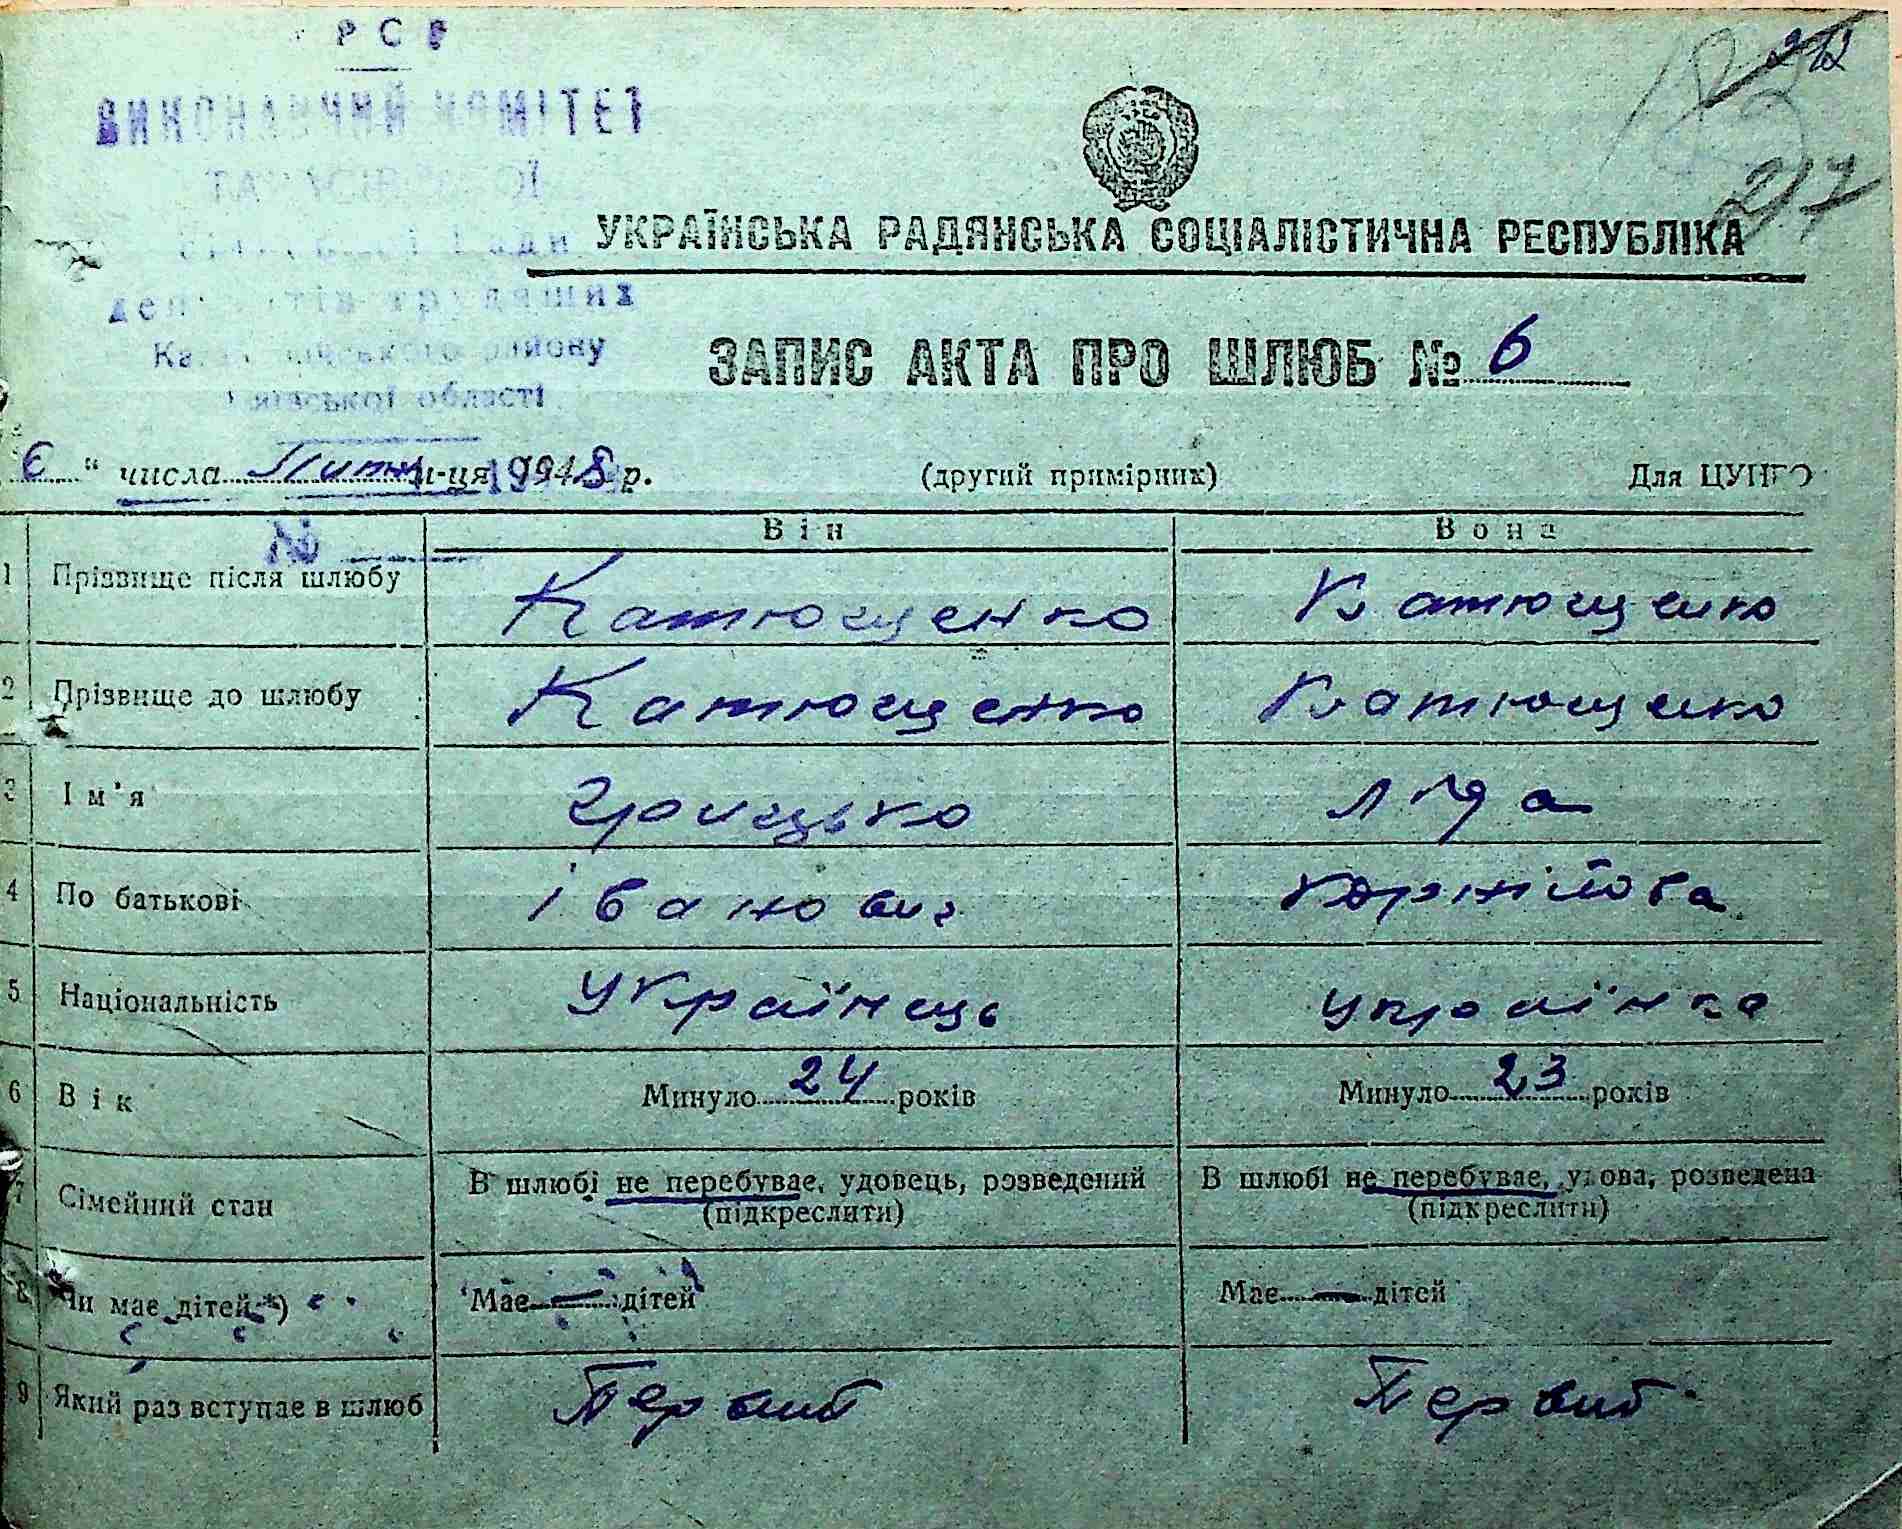 РСР
ВИКОНАВЧИЙ КОМІТЕТ
депутатів трудящих
району
Київської області
212
217
УКРАЇНСЬКА РАДЯНСЬКА СОЦІАЛІСТИЧНА РЕСПУБЛІКА
ЗАПИС АКТА ПРО ШЛЮБ № 6
6 " числа м-ця 1948 р. (другий примірник) Для ЦУНГО
№
Він Вона
1 Прізвище після шлюбу Катющенко Катющенко
2 Прізвище до шлюбу Катющенко Катющенко
3 Ім'я Грицько Ліда
4 По батькові Іванович Корніїовна
5 Національність Українець Українка
6 Вік Минуло 24 років Минуло 23 років
7 Сімейний стан В шлюбі не перебуває, удовець, розведений В шлюбі не перебуває, удова, розведена
(підкреслити) (підкреслити)
8 Чи має дітей *) Має — дітей Має — дітей
9 Який раз вступає в шлюб Первий Первий